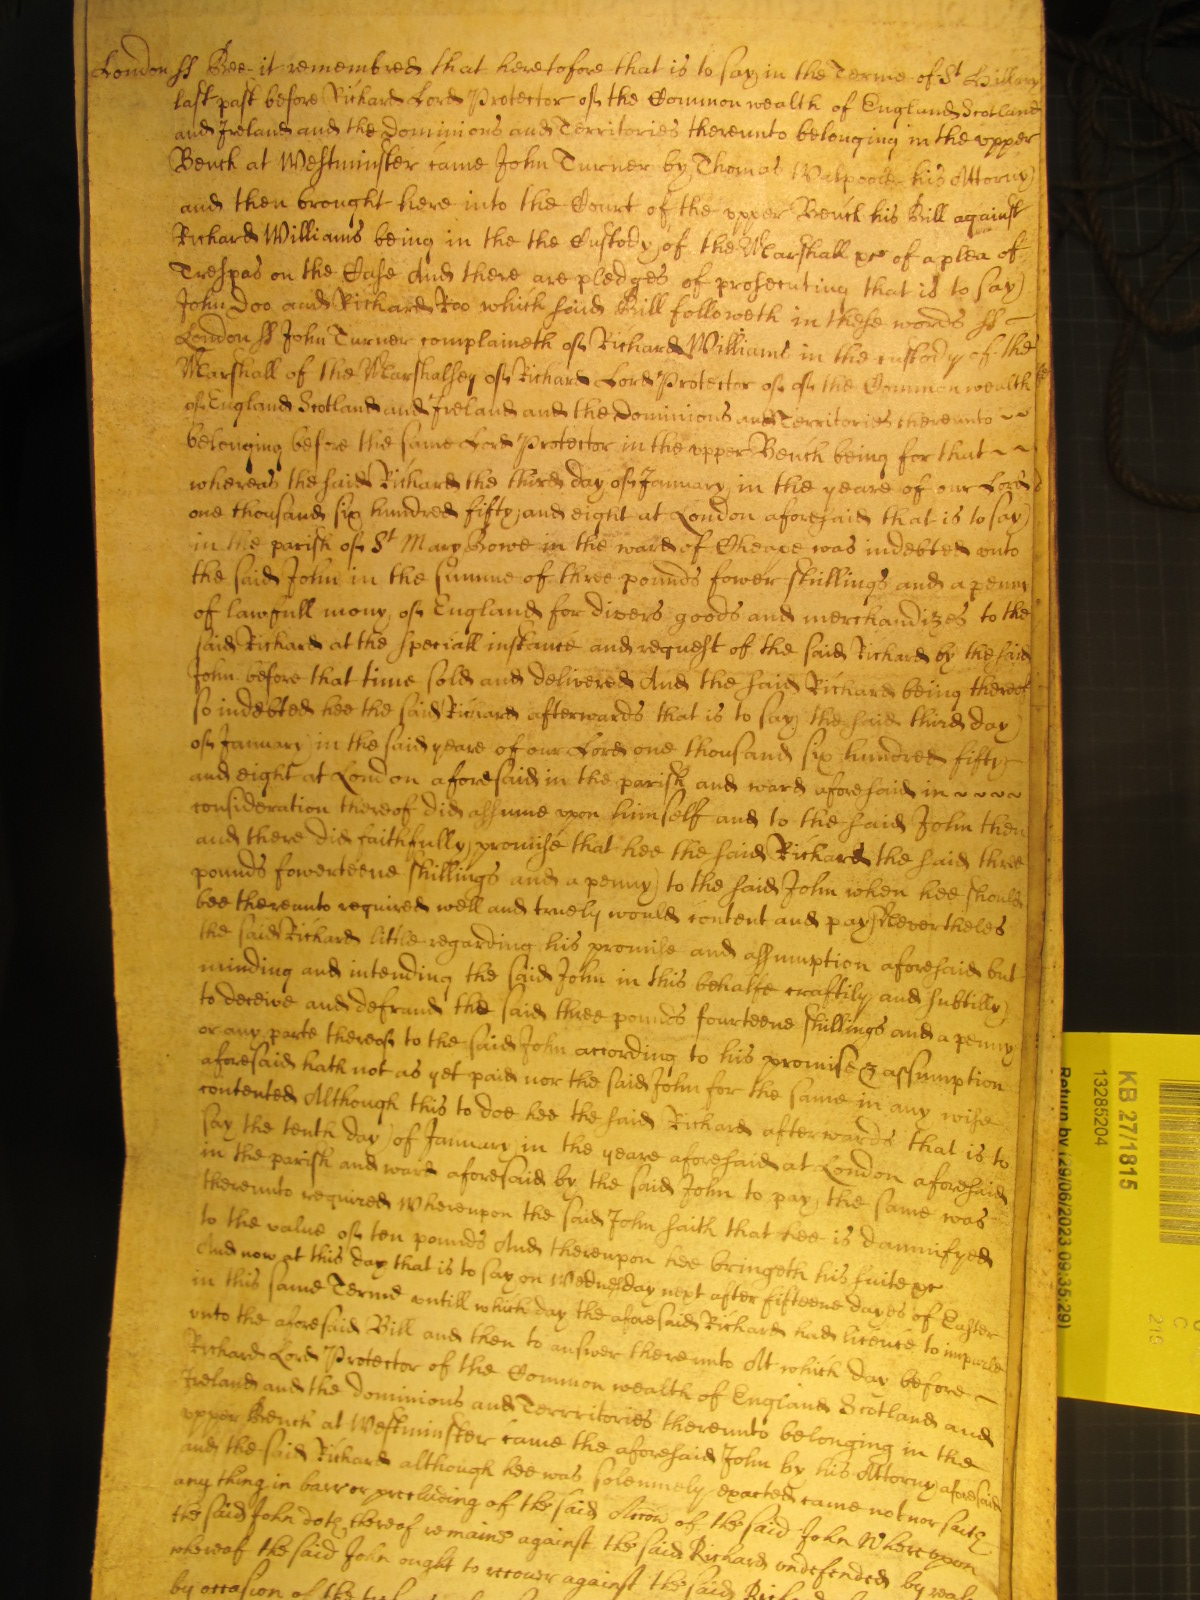 London ss Bee it remembred that heretofore that is to say in the Terme of St Hillary
last past before Richard Lord Protector of the Common wealth of England Scotland
and Ireland and the Dominions and Territories thereunto belonging in the upper
Bench at Westminster came John Turner by Thomas Walpoole his Attorny
and then brought here into the Court of the upper Bench his Bill against
Richard Williams being in the the Custody of the Marshall &c of a plea of
Trespas on the Case And there are pledges of prosecuting that is to say
John Doo and Richard Roo which said Bill followeth in these words ss
London ss John Turner complaineth of Richard Williams in the custody of the
Marshall of the Marshalsey of Richard Lord Protector of of the Common wealth
of England Scotland and Ireland and the Dominions and Territories thereunto
belonging before the same Lord Protector in the upper Bench being for that
whereas the said Richard the third day of January in the yeare of our Lord
one thousand six hundred fifty and eight at London aforesaid that is to say
in the parish of St Mary Bowe in the ward of Cheape was indebted unto
the said John in the summe of three pounds fower shillings and a penny
of lawfull mony of England for divers goods and merchandizes to the
said Richard at the speciall instance and request of the said Richard by the said
John before that time sold and delivered And the said Richard being thereof
so indebted hee the said Richard afterwards that is to say the said third day
of January in the said yeare of our Lord one thousand six hundred fifty
and eight at London aforesaid in the parish and ward aforesaid in
consideration thereof did assume upon himself and to the said John then
and there did faithfully promise that hee the said Richard the said three
pounds fowerteene shillings and a penny to the said John when hee should
bee thereunto required well and truely would content and pay Nevertheles
the said Richard little regarding his promise and assumption aforesaid but
minding and intending the said John in this behalfe craftily and subtilly
to deceive and defraud the said three pounds fourteene shillings and a penny
or any parte thereof to the said John according to his promise & assumption
aforesaid hath not as yet paid nor the said John for the same in any wise
contented Although this to doe hee the said Richard afterwards that is to
say the tenth day of January in the yeare aforesaid at London aforesaid
in the parish and ward aforesaid by the said John to pay the same was
thereunto required Whereupon the said John saith that hee is damnifyed
to the value of ten pounds And thereupon hee bringeth his suite &c
And now at this day that is to say on Wednesday next after fifteene dayes of Easter
in this same Terme untill which day the aforesaid Richard had licence to imparle
unto the aforesaid Bill and then to answer thereunto At which day before
Richard Lord Protector of the Common wealth of England Scotland and
Ireland and the Dominions and Terrritories thereunto belonging in the
upper Bench at Westminster came the aforesaid John by his Attorny aforesaid
and the said Richard although hee was solemnely exacted came not nor saith
any thing in barr or precluding of the said Accon of the said John Whereupon
the said John doth thereof remaine against the said Richard undefended by
whereof the said John ought to recover against the said Richard
by occasion of the
KB 27/1815
13285204
Return by (29/06/2023 09:35:29)
C
216